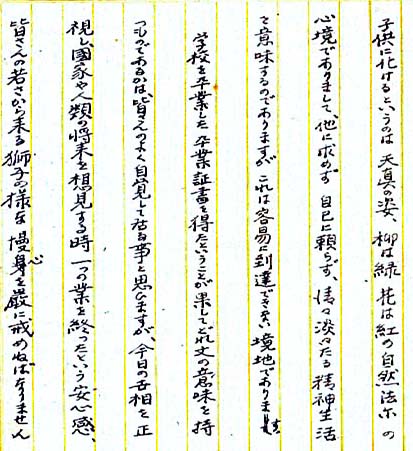 子供に化けるというのは天真の姿、柳は緑 花は紅の自然法尓の
心境でありまして、他に求めず 自己に頼らず、清々淡々たる精神生活
を意味するのでありますが これは容易に到達できない境地であります
学校を卒業した 卒業証書を得たということが果してどれ丈の意味を持
つものであるかは、皆さんのよく自覚して居る事と思いますが、今日の世相を正
視し國家や人類の将来を想見する時 一つの業を終ったという安心感、
皆さんの若さから来る獅子の様な慢心を厳に戒めねばなりません